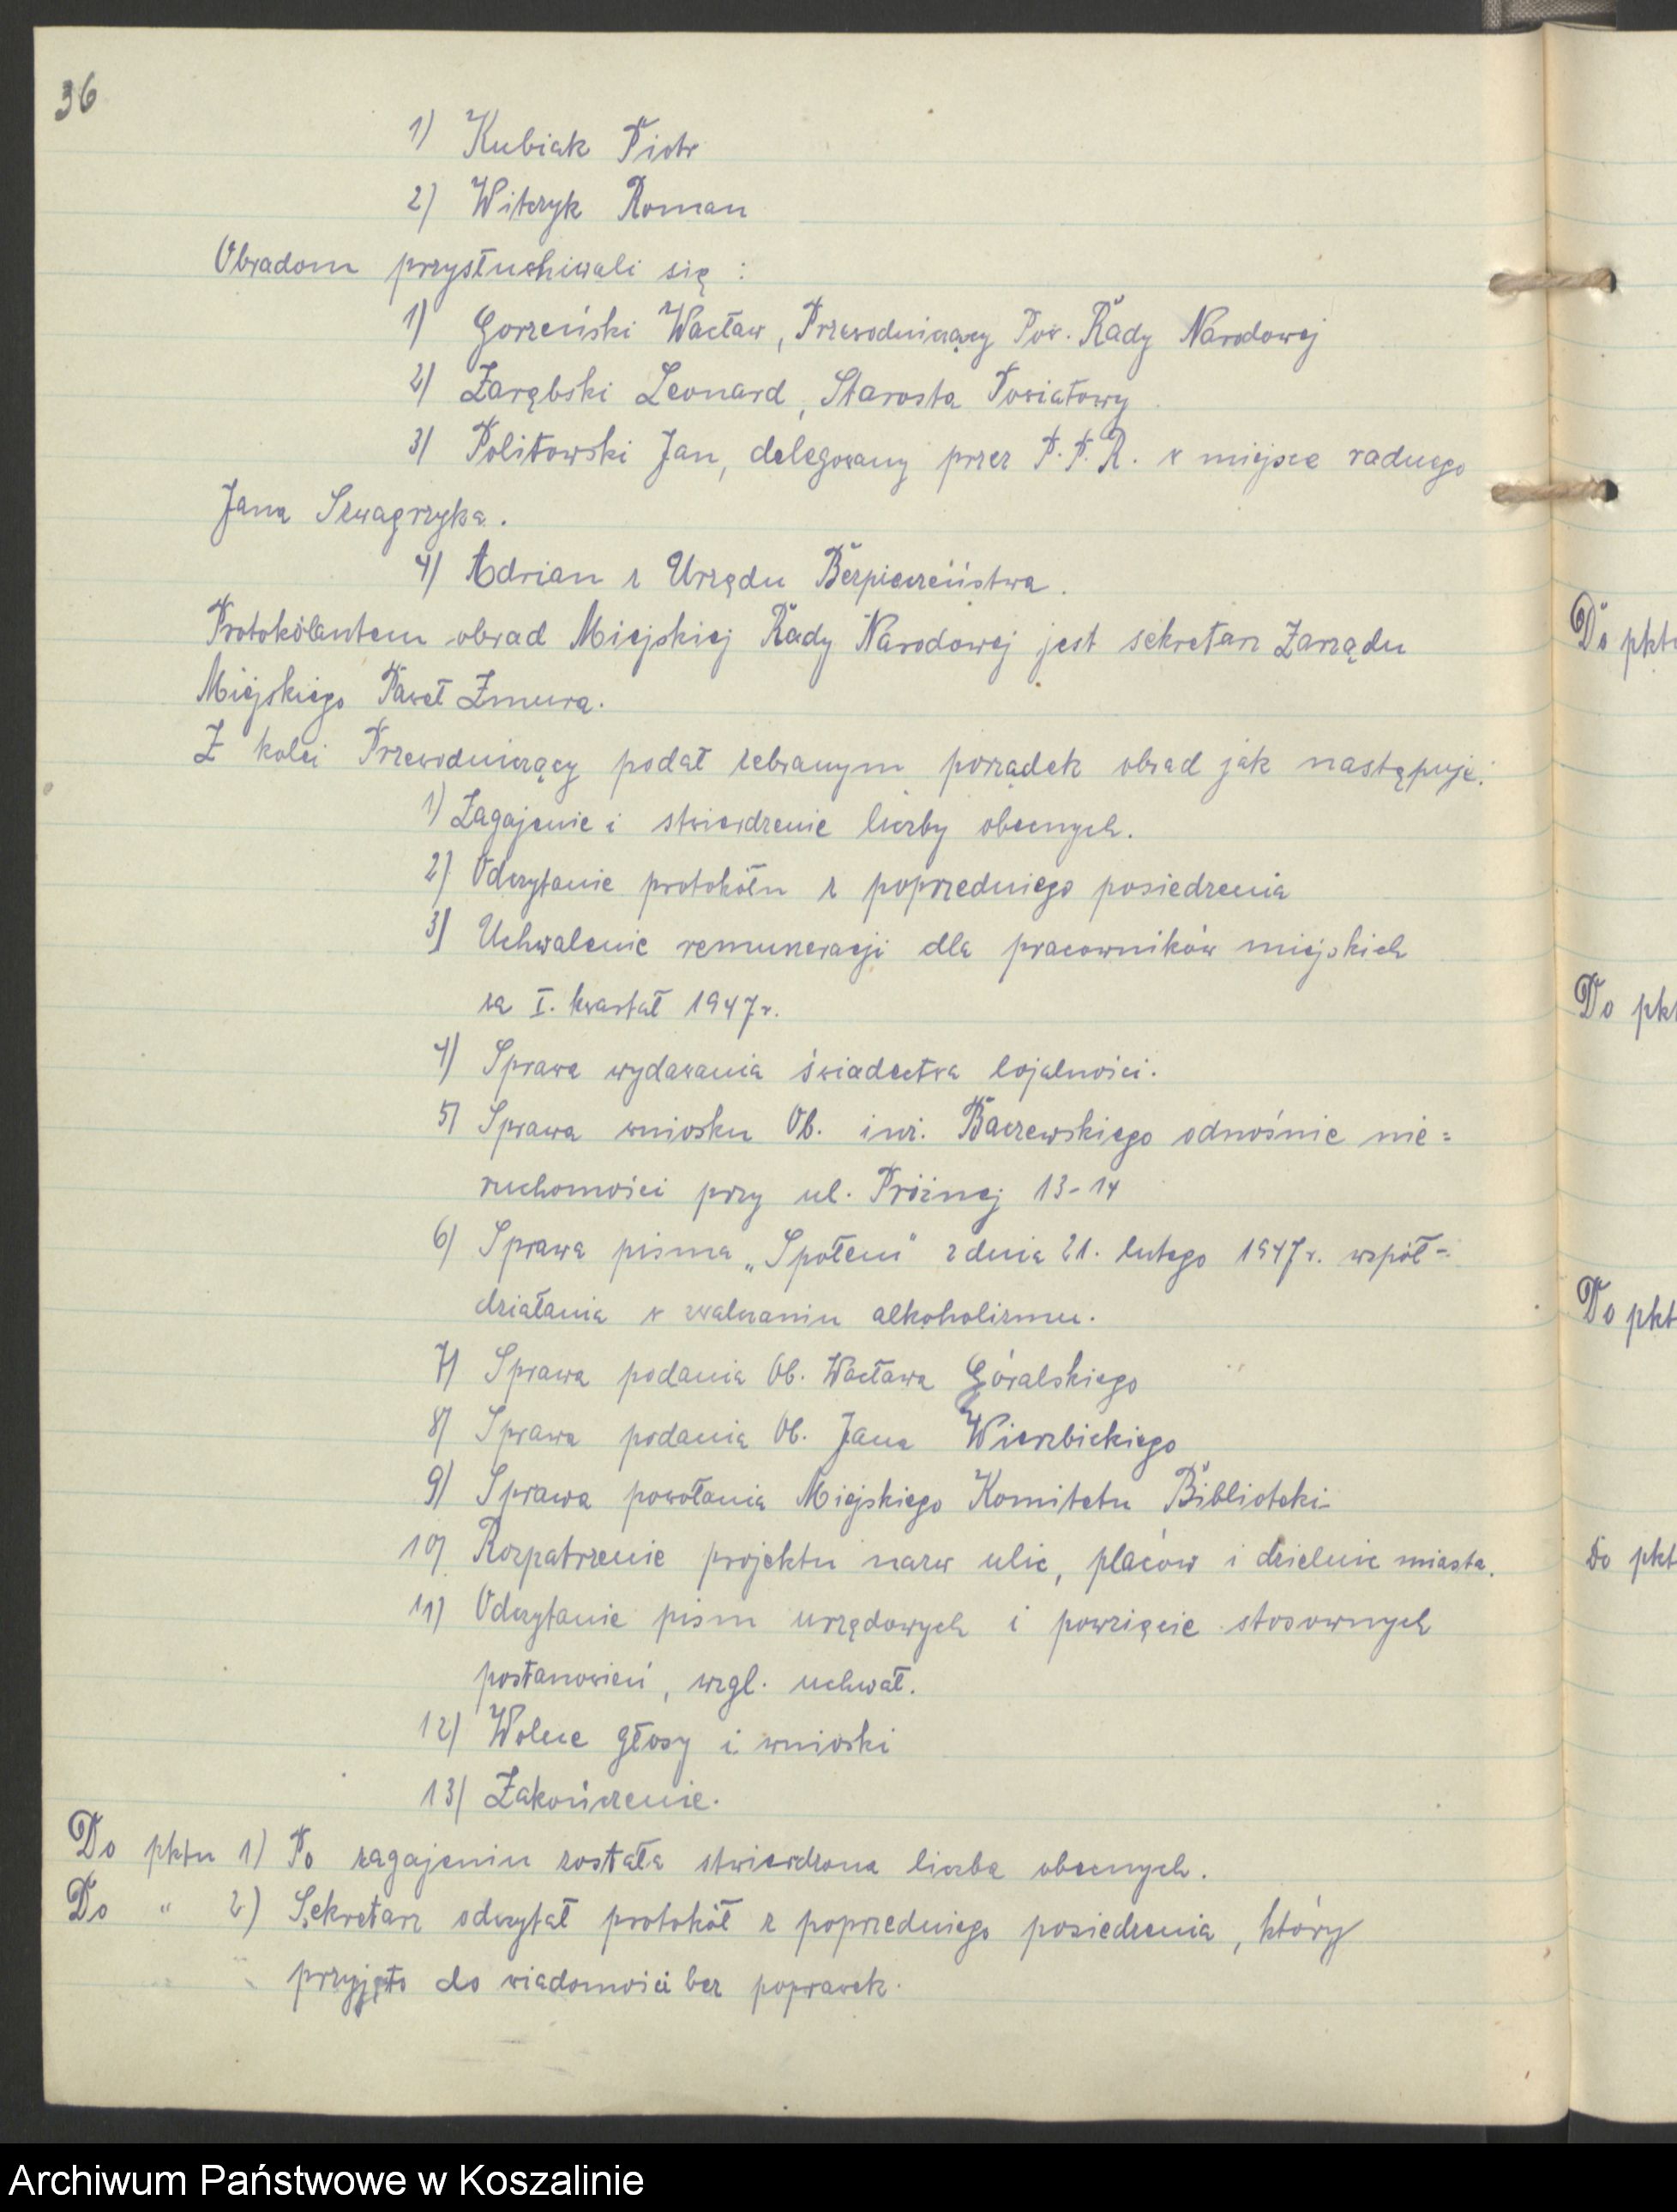 36
1) Kubiak Piotr
2) Witczyk Roman
Obradom przysłuchiwali się :
1) Gorzeński Wacław, Przewodniczący Pow. Rady Narodowej
2) Zarębski Leonard, Starosta Powiatowy
3) Politowski Jan, delegowany przez P.P.R. w miejsce radnego
Jana Szwagrzyka.
4) Adrian z Urzędu Bezpieczeństwa.
Protokólantem obrad Miejskiej Rady Narodowej jest sekretarz Zarządu
Miejskiego Paweł Żmura.
Z kolei Przewodniczący podał zebranym porządek obrad jak następuje:
1) Zagajenie i stwierdzenie liczby obecnych.
2) Odczytanie protokółu z poprzedniego posiedzenia
3) Uchwalenie remuneracji dla pracowników miejskich
za I. kwartał 1947 r.
4) Sprawa wydawania świadectwa lojalności.
5) Sprawa wniosku Ob. inż. Baczewskiego odnośnie nie=
ruchomości przy ul. Próżnej 13-14
6) Sprawa pisma „Społem" z dnia 21. lutego 1947 r. współ=
działania w zwalczaniu alkoholizmu.
7) Sprawa podania Ob. Wacława Góralskiego
8) Sprawa podania Ob. Jana Wierzbickiego
9) Sprawa powołania Miejskiego Komitetu Biblioteki
10) Rozpatrzenie projektu nazw ulic, placów i dzielnic miasta.
11) Odczytanie pism urzędowych i powzięcie stosownych
postanowień, wzgl. uchwał.
12) Wolne głosy i wnioski
13) Zakończenie.
Do pktu 1) Po zagajeniu została stwierdzona liczba obecnych.
Do " 2) Sekretarz odczytał protokół z poprzedniego posiedzenia, który
przyjęto do wiadomości bez poprawek.
Do pktu
Do pkt
Do pkt
Do pkt
Archiwum Państwowe w Koszalinie